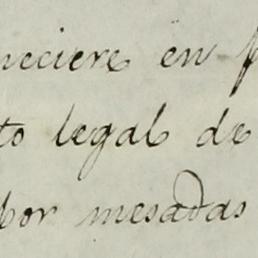 neciere en
to legal de
por mesadas